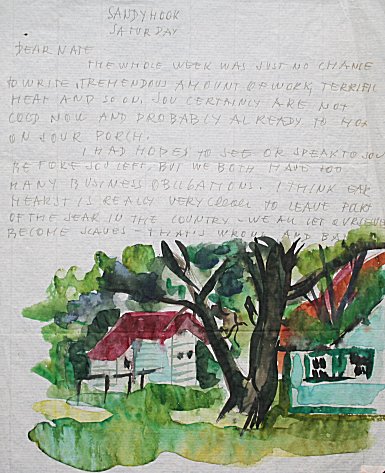 SANDY HOOK
SATURDAY
DEAR NATE
THE WHOLE WEEK WAS JUST NO CHANCE
TO WRITE, TREMENDOUS AMOUNT OF WORK, TERRIFIC
HEAT AND SO ON. YOU CERTAINLY ARE NOT
COLD NOW AND PROBABLY ALREADY TO HOT
ON YOUR PORCH.
I HAD HOPES TO SEE OR SPEAK TO YOU
BEFORE YOU LEFT, BUT WE BOTH HAVE TOO
MANY BUSINESS OBLIGATIONS. I THINK
HEARST IS REALLY VERY TO LEAVE PART
OF THE YEAR IN THE COUNTRY - WE ALL LET OURSELVES
BECOME SLAVES - THAT'S WRONG AND BAD